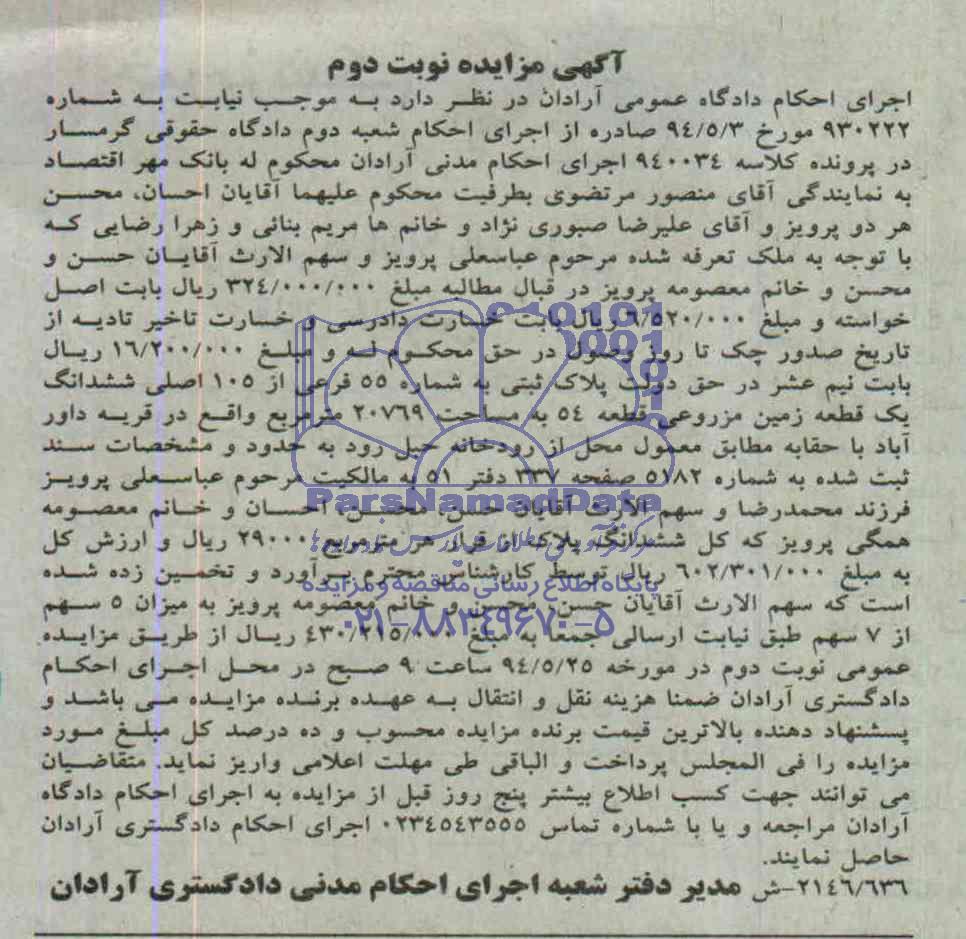 آگهی مزایده نوبت دوم
اجرای احکام دادگاه عمومی آرادان در نظر دارد به موجب نیابت به شماره
۹۳۰۲۲۲ مورخ ۹٤/٥/۳ صادره از اجرای احکام شعبه دوم دادگاه حقوقی گرمسار
در پرونده کلاسه ۹٤۰۰۳٤ اجرای احکام مدنی آرادان محکوم له بانک مهر اقتصاد
به نمایندگی آقای منصور مرتضوی بطرفیت محکوم علیهما آقایان احسان، محسن
هر دو پرویز و آقای علیرضا صبوری نژاد و خانم ها مریم بنائی و زهرا رضایی که
با توجه به ملک تعرفه شده مرحوم عباسعلی پرویز و سهم الارث آقایان حسن و
محسن و خانم معصومه پرویز در قبال مطالبه مبلغ ۳۲٤/۰۰۰/۰۰۰ ریال بابت اصل
خواسته و مبلغ ٦/٥۲۰/۰۰۰ ریال بابت خسارت دادرسی و خسارت تاخیر تادیه از
تاریخ صدور چک تا روز وصول در حق محکوم له و مبلغ ۱٦/۲۰۰/۰۰۰ ریال
بابت نیم عشر در حق دولت پلاک ثبتی به شماره ٥٥ فرعی از ۱۰٥ اصلی ششدانگ
یک قطعه زمین مزروعی قطعه ٥٤ به مساحت ۲۰۷٦۹ مترمربع واقع در قریه داور
آباد با حقابه مطابق معمول محل از رودخانه حبل رود به حدود و مشخصات سند
ثبت شده به شماره ٥۱۸۲ صفحه ۳۳۷ دفتر ٥۱ به مالکیت مرحوم عباسعلی پرویز
ParsNamadData
فرزند محمدرضا و سهم الارث آقایان حسن، محسن، احسان و خانم معصومه
همگی پرویز که کل ششدانگ پلاک از قرار هر مترمربع ۲۹۰۰۰ ریال و ارزش کل
به مبلغ ٦۰۲/۳۰۱/۰۰۰ ریال توسط کارشناس محترم برآورد و تخمین زده شده
پایگاه اطلاع رسانی مناقصه و مزایده
است که سهم الارث آقایان حسن، محسن و خانم معصومه پرویز به میزان ٥ سهم
۰۲۱-۸۸۳٤۹٦۷۰-٥
از ۷ سهم طبق نیابت ارسالی جمعا به مبلغ ٤۳۰/۲۱٥/۰۰۰ ریال از طریق مزایده
عمومی نوبت دوم در مورخه ۹٤/٥/۲٥ ساعت ۹ صبح در محل اجرای احکام
دادگستری آرادان ضمنا هزینه نقل و انتقال به عهده برنده مزایده می باشد و
پسشنهاد دهنده بالاترین قیمت برنده مزایده محسوب و ده درصد کل مبلغ مورد
مزایده را فی المجلس پرداخت و الباقی طی مهلت اعلامی واریز نماید. متقاضیان
می توانند جهت کسب اطلاع بیشتر پنج روز قبل از مزایده به اجرای احکام دادگاه
آرادان مراجعه و یا با شماره تماس ۰۲۳٤٥٤۳٥٥٥ اجرای احکام دادگستری آرادان
حاصل نمایند.
۲۱٤٦/٦۳٦-ش مدیر دفتر شعبه اجرای احکام مدنی دادگستری آرادان